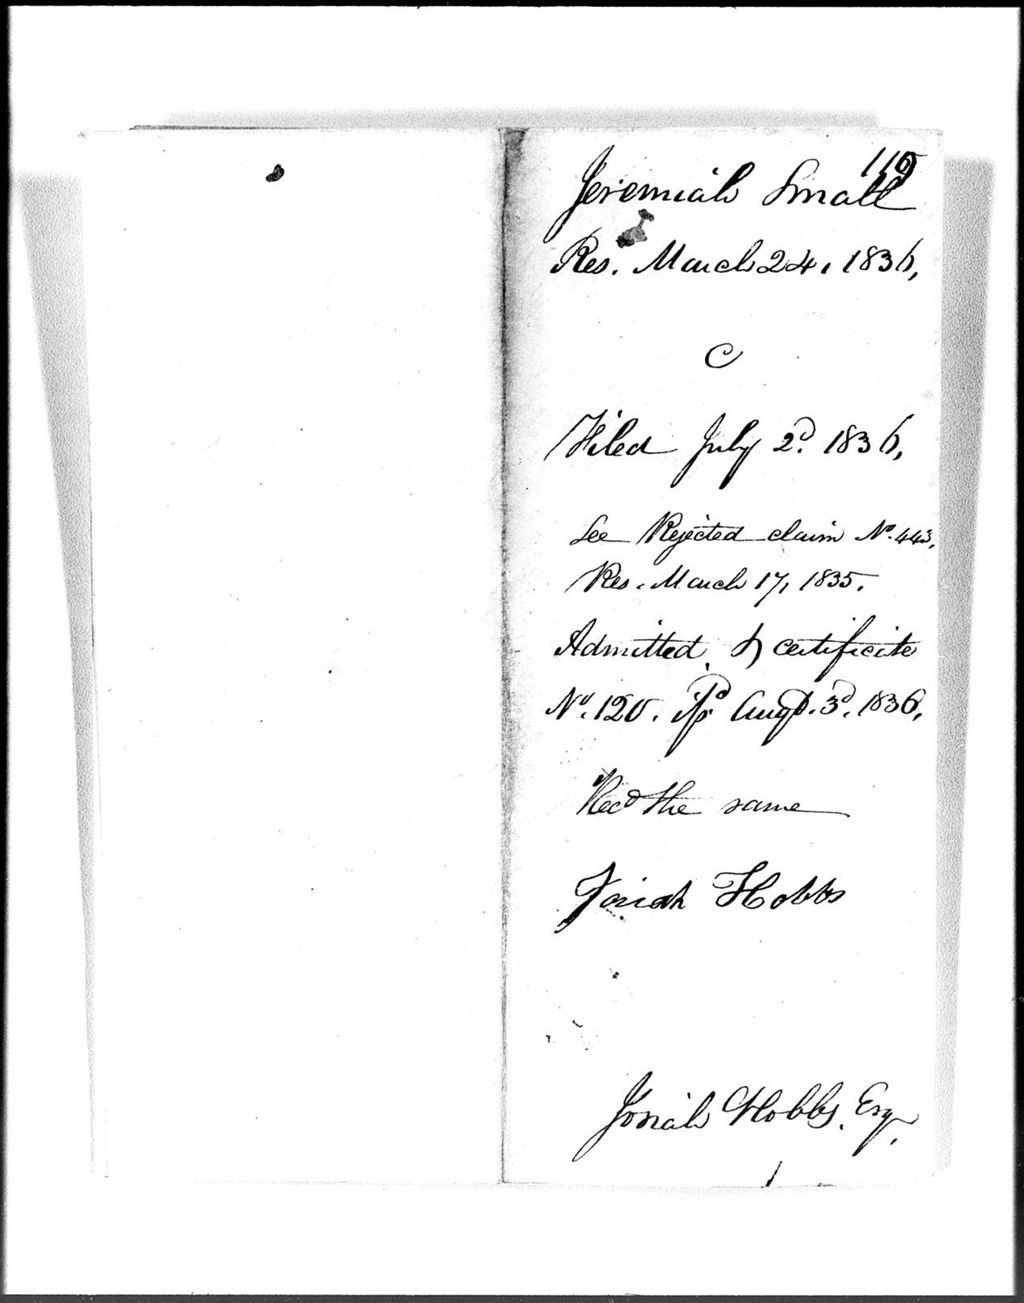 115
Jeremiah Small
Res. March 24, 1836,
C
Filed July 2d. 1836,
See Rejected claim No. 443,
Res. March 17, 1835.
Admitted & certificate
No. 120. isd Augt. 3d. 1836,
Recd the same
Josiah Hobbs
Josiah Hobbs, Esq.